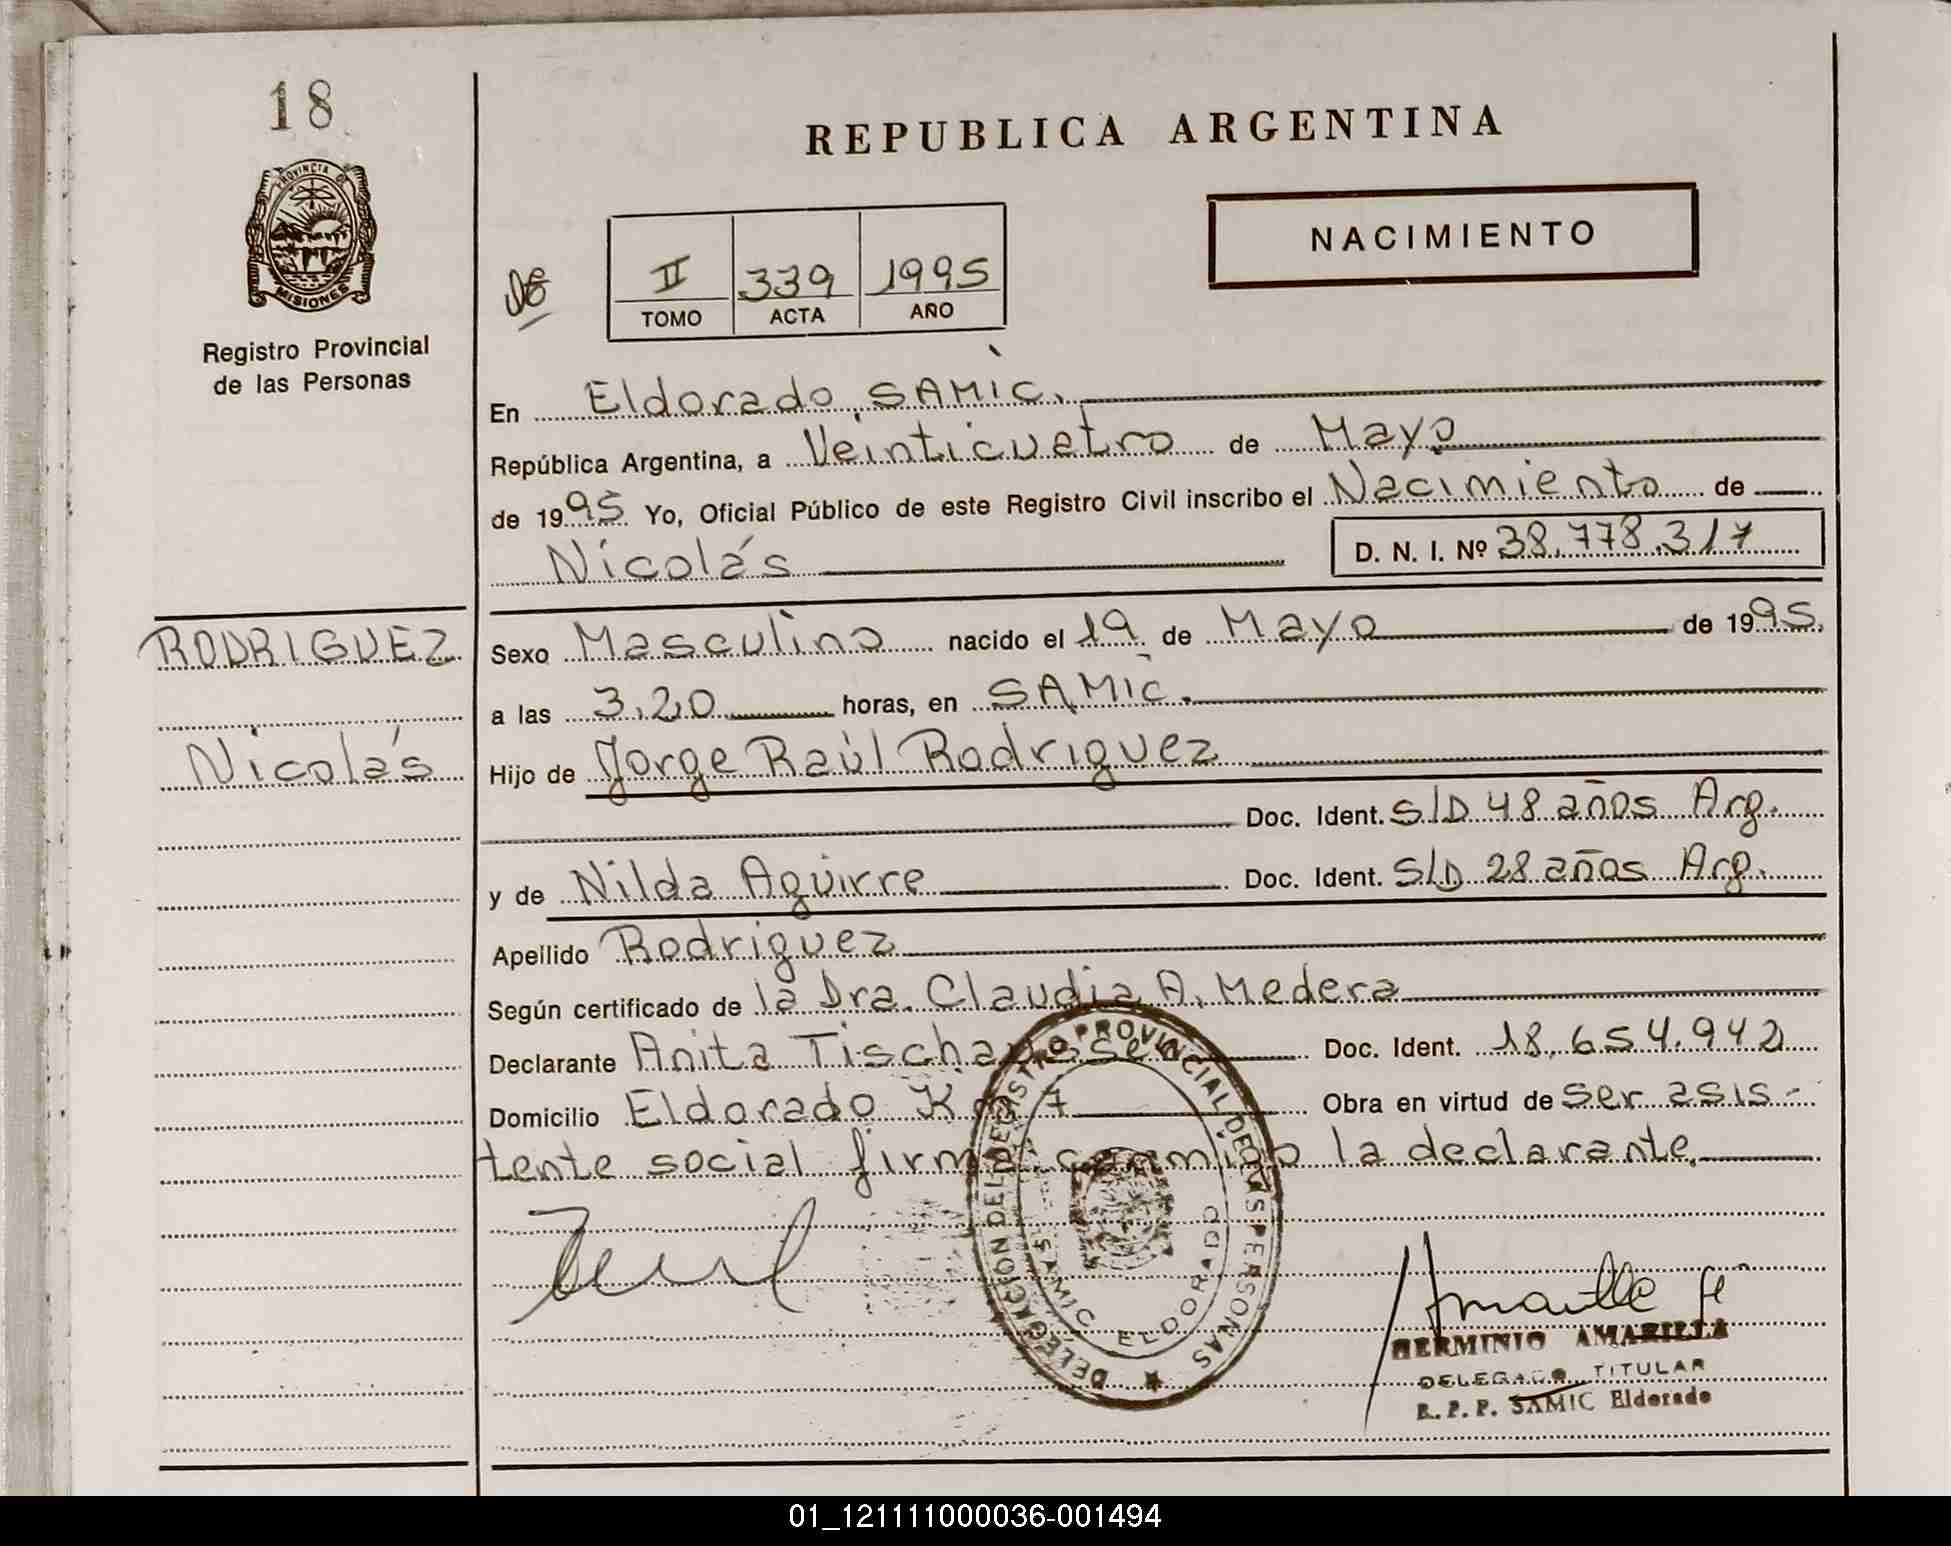 18
PROVINCIA DE
MISIONES
Registro Provincial
de las Personas
REPUBLICA ARGENTINA
NACIMIENTO
II 339 1995
TOMO ACTA AÑO
En Eldorado, SAMIC.
República Argentina, a Veinticuatro de Mayo
de 1995 Yo, Oficial Público de este Registro Civil inscribo el Nacimiento de
Nicolás D. N. I. Nº 38.778.317
RODRIGUEZ
Nicolás
Sexo Masculino nacido el 19 de Mayo de 1995.
a las 3,20 horas, en SAMIC.
Hijo de Jorge Raúl Rodriguez
Doc. Ident. S/D 48 años Arg.
y de Nilda Aguirre Doc. Ident. S/D 28 años Arg.
Apellido Rodriguez
Según certificado de la Dra. Claudia A. Medera
Declarante Anita Doc. Ident. 18.654.942
Domicilio Eldorado Km 7 Obra en virtud de ser asis-
tente social firma conmigo la declarante.
DELEGACION DEL REGISTRO PROVINCIAL DE LAS PERSONAS
SAMIC ELDORADO
HERMINIO AMARILLA
DELEGADO TITULAR
R. P. P. SAMIC Eldorado
01_121111000036-001494